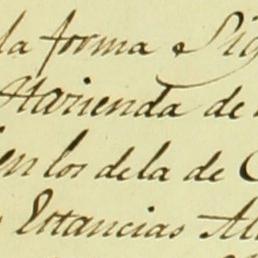 la forma
Hazienda de
en los de la de
Estancias